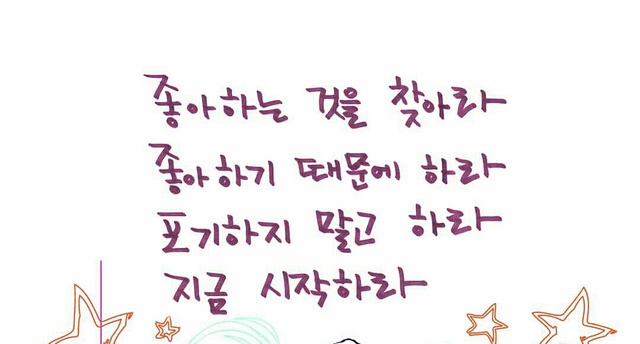 좋아하는 것을 찾아라
좋아하기 때문에 하라
포기하지 말고 하라
지금 시작하라